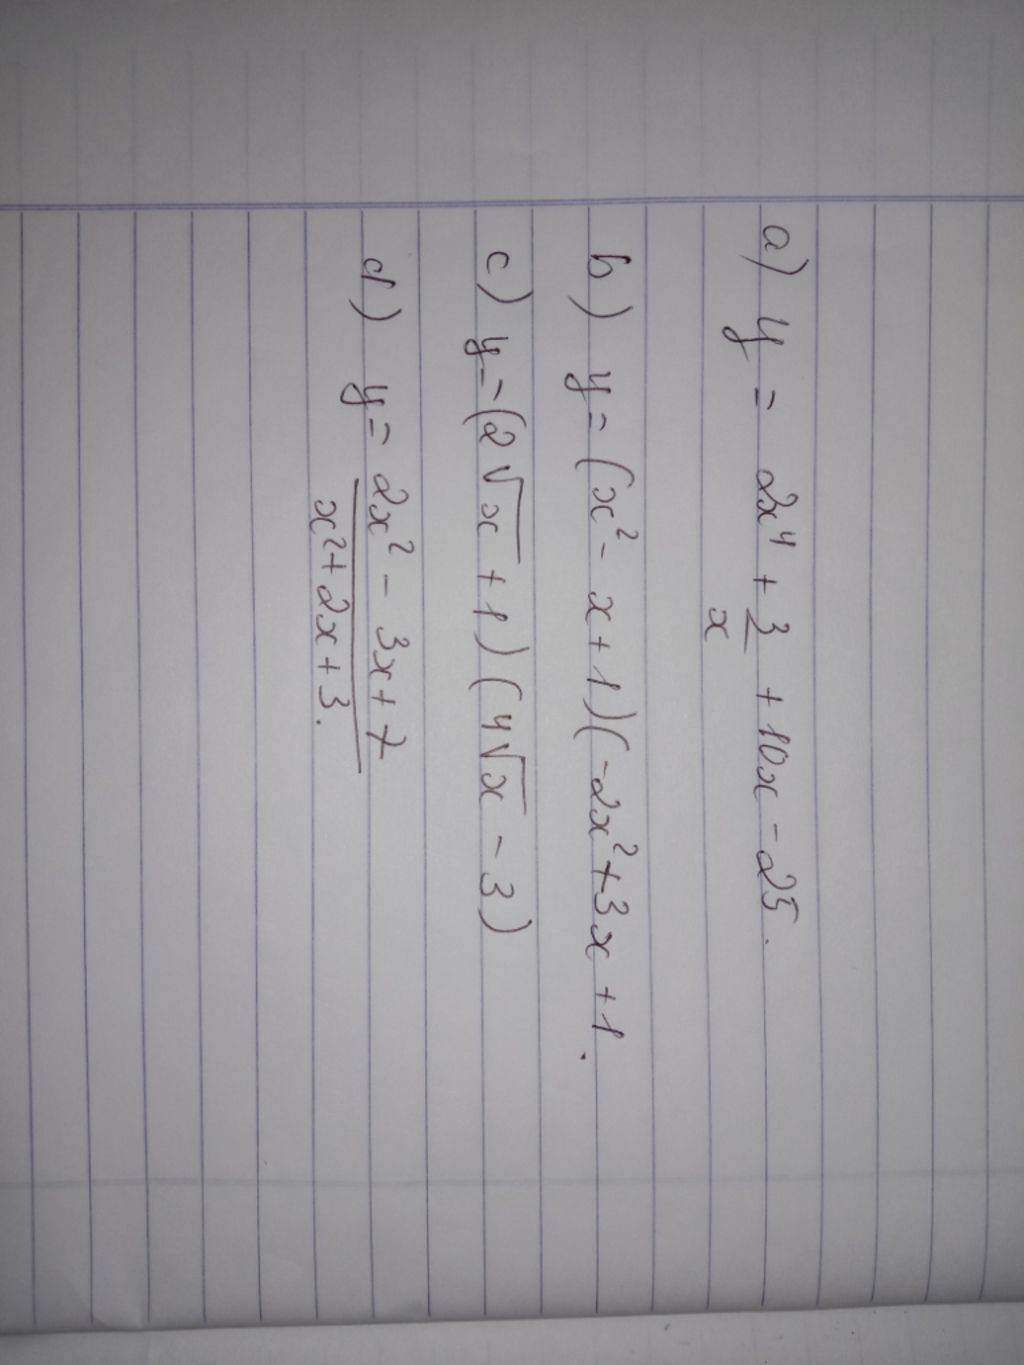 a) y = 2x⁴ + 3/x + 10x - 25.
b) y = (x² - x + 1)(-2x² + 3x + 1.
c) y = (2√x + 1)(4√x - 3)
d) y = 2x² - 3x + 7
x² + 2x + 3.